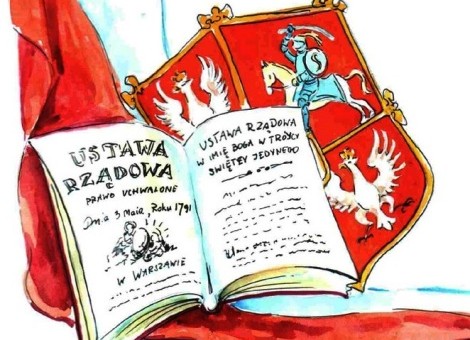 USTAWA
RZĄDOWA
PRAWO UCHWALONE
Dnia 3 Maia, Roku 1791
W WARSZAWIE
USTAWA RZĄDOWA
W IMIĘ BOGA W TRÓYCY
ŚWIĘTEY JEDYNEGO